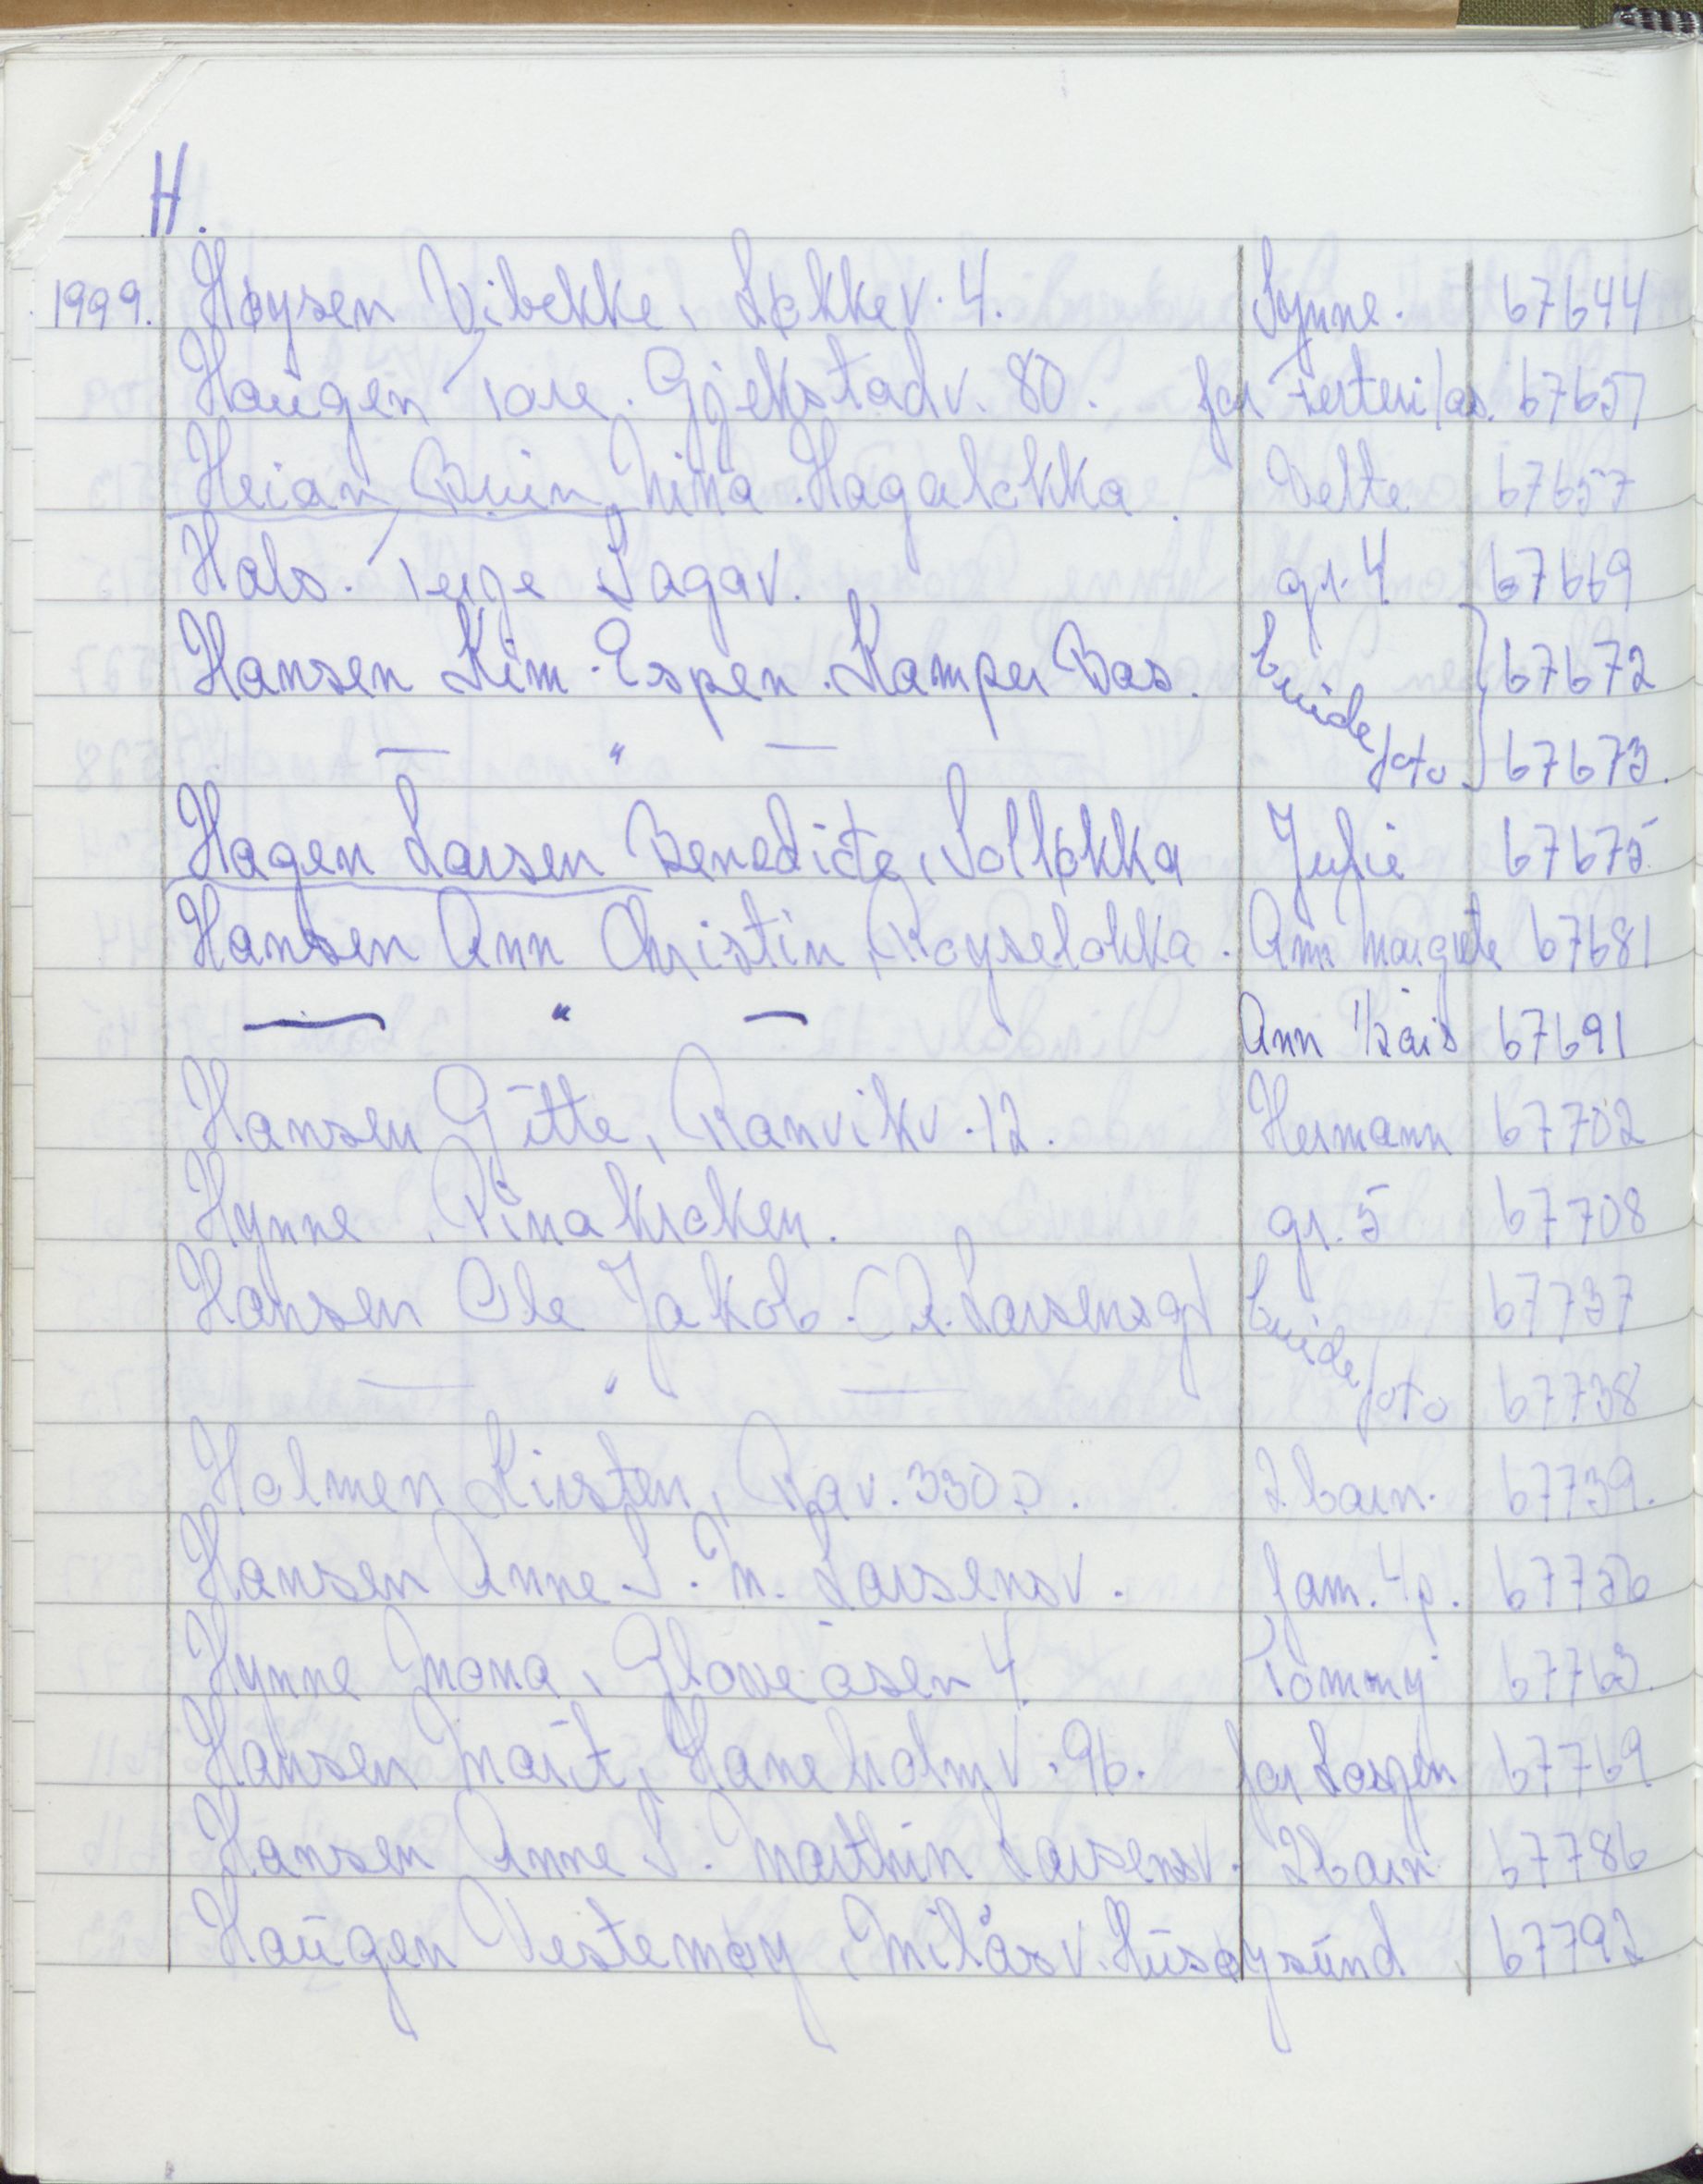 H.
1999. Høysen Vibekke, Løkkev. 4. Synne. 67644
Haugen Tore. Gjekstadv. 80. for Terteri/as. 67651
Heian Bruin, Nina. Hagaløkka. Vette 67657
Hals. Terje Sagav. gr. 4 67669
Hansen Kim-Espen. Kamper Bas. brude 67672
— " — foto 67673.
Hagen Larsen Benedicte, Solløkka Julie 67675
Hansen Ann Christin, Røyseløkka. Ann Margrete 67681
— " — Ann 1/2 års 67691
Hansen Gitte, Ranvikv. 12. Hermann 67702
Hynne, Pinakroken. gr. 5 67708
Hansen Ole Jakob. O.A. Larsensgt brude 67737
— " — foto 67738
Holmen Kirsten, Rav. 330 2 barn. 67739.
Hansen Anne S. M. Larsensv. fam. 4p. 67756
Hynne Mona, Gloveåsen 4. Tommy 67763.
Hansen Marit, Haneholmv. 96. for Losjen 67769
Hansen Anne S. Marthin Larsensv. 2 barn 67786
Haugen Vestemøy, Milåsv. Husøysund 67792